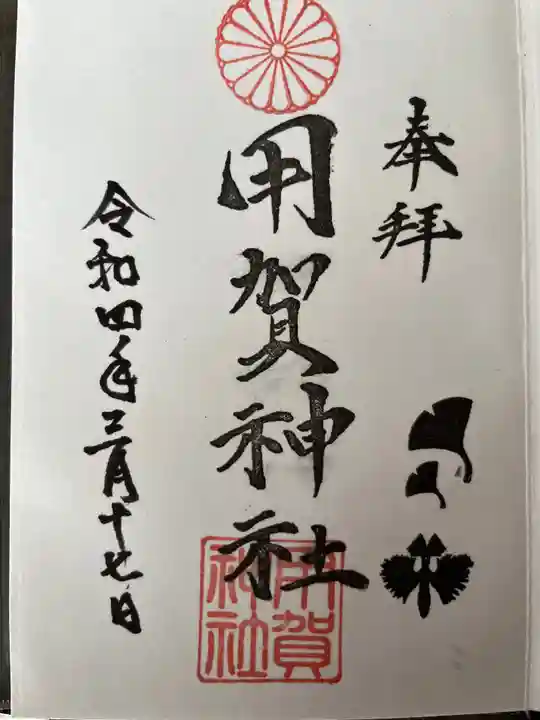 奉拝
用賀神社
令和四年三月十七日
用賀
神社